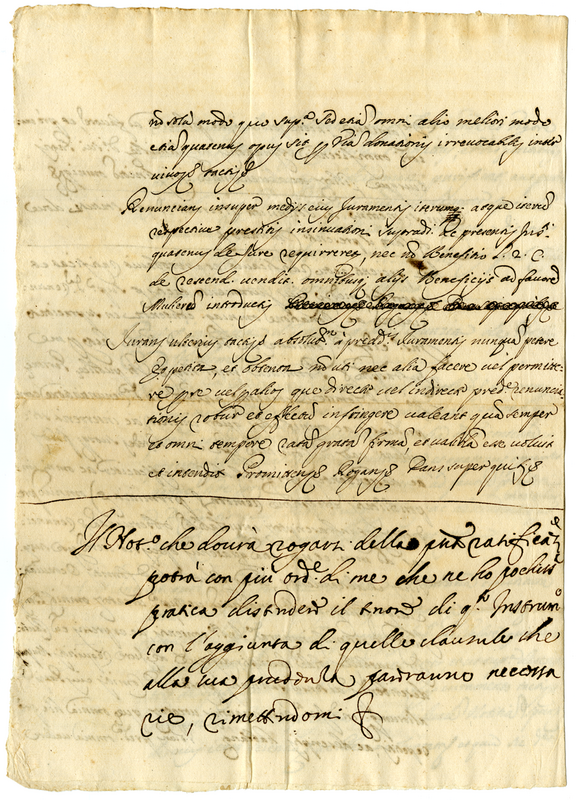 modo que sup.ª sed etiā omni alio meliori modo
etiā quatenus opus sit donationis irrevocabilis inter
vivos tactis
Renuncians insuper medijs eius Juramentis iterum atque iterum
respective prestitis insinuationi supradi. et presentis Ins.ti
quatenus de Jure requirreret, nec nō Benefitio L. 2. C.
de rescend. vendit. omnibusq alijs Beneficijs ad favorē
Mulierū introductis
Jurans ulterius tactis absolut.nē à pred. Juramentis nunquā petere
et obtenta nō uti nec alia facere vel permitte-
re per se vel alios que directe vel indirecte pred.e renuncia
tionis robur et effectū infringere valeant quā semper
et omni tempore ratā gratā firmā et validā esse voluit
et intendit Promittens Rogans Dans super quibus
Il Not.o che dovrà rogarsi della ratifica
potrà con più ord.e di me che ne ho pochiss.
pratica distendere il tenore di q.to Instrum.o
con l'aggiunta di quelle clausule che
alla sua prudenza parranno necessa
rie, rimettendomi